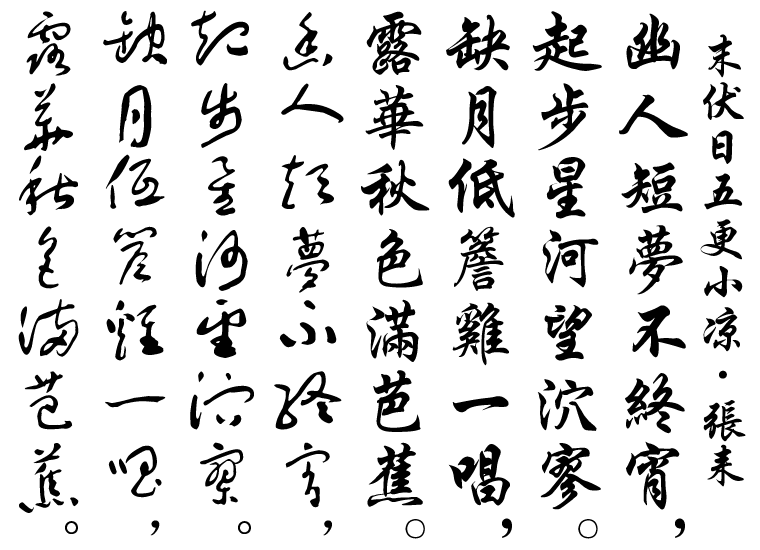 末伏日五更小凉・張耒
幽人短夢不終宵，
起步星河望泬寥。
缺月低簷雞一唱，
露華秋色滿芭蕉。
幽人短夢不終宵，
起步星河望泬寥。
缺月低簷雞一唱，
露華秋色滿芭蕉。